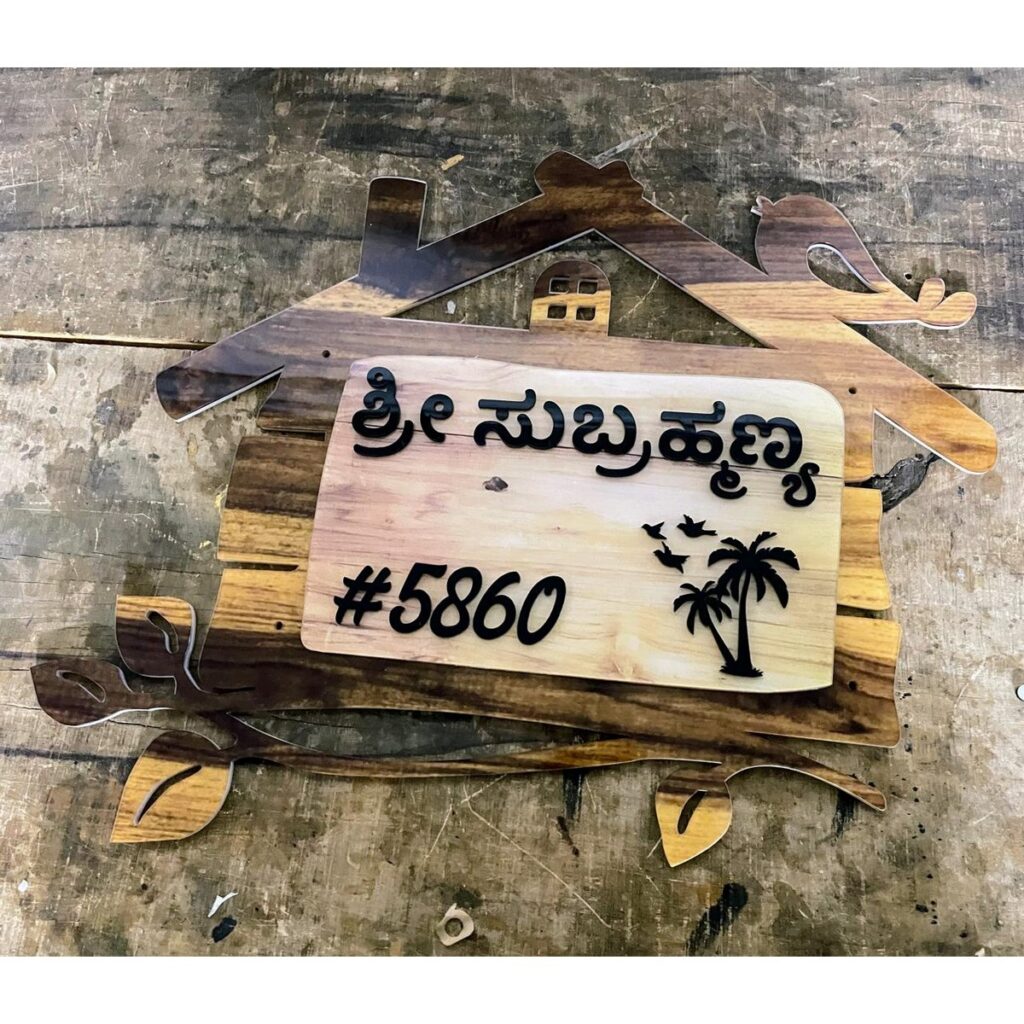 ಶ್ರೀ ಸುಬ್ರಹ್ಮಣ್ಯ
#5860